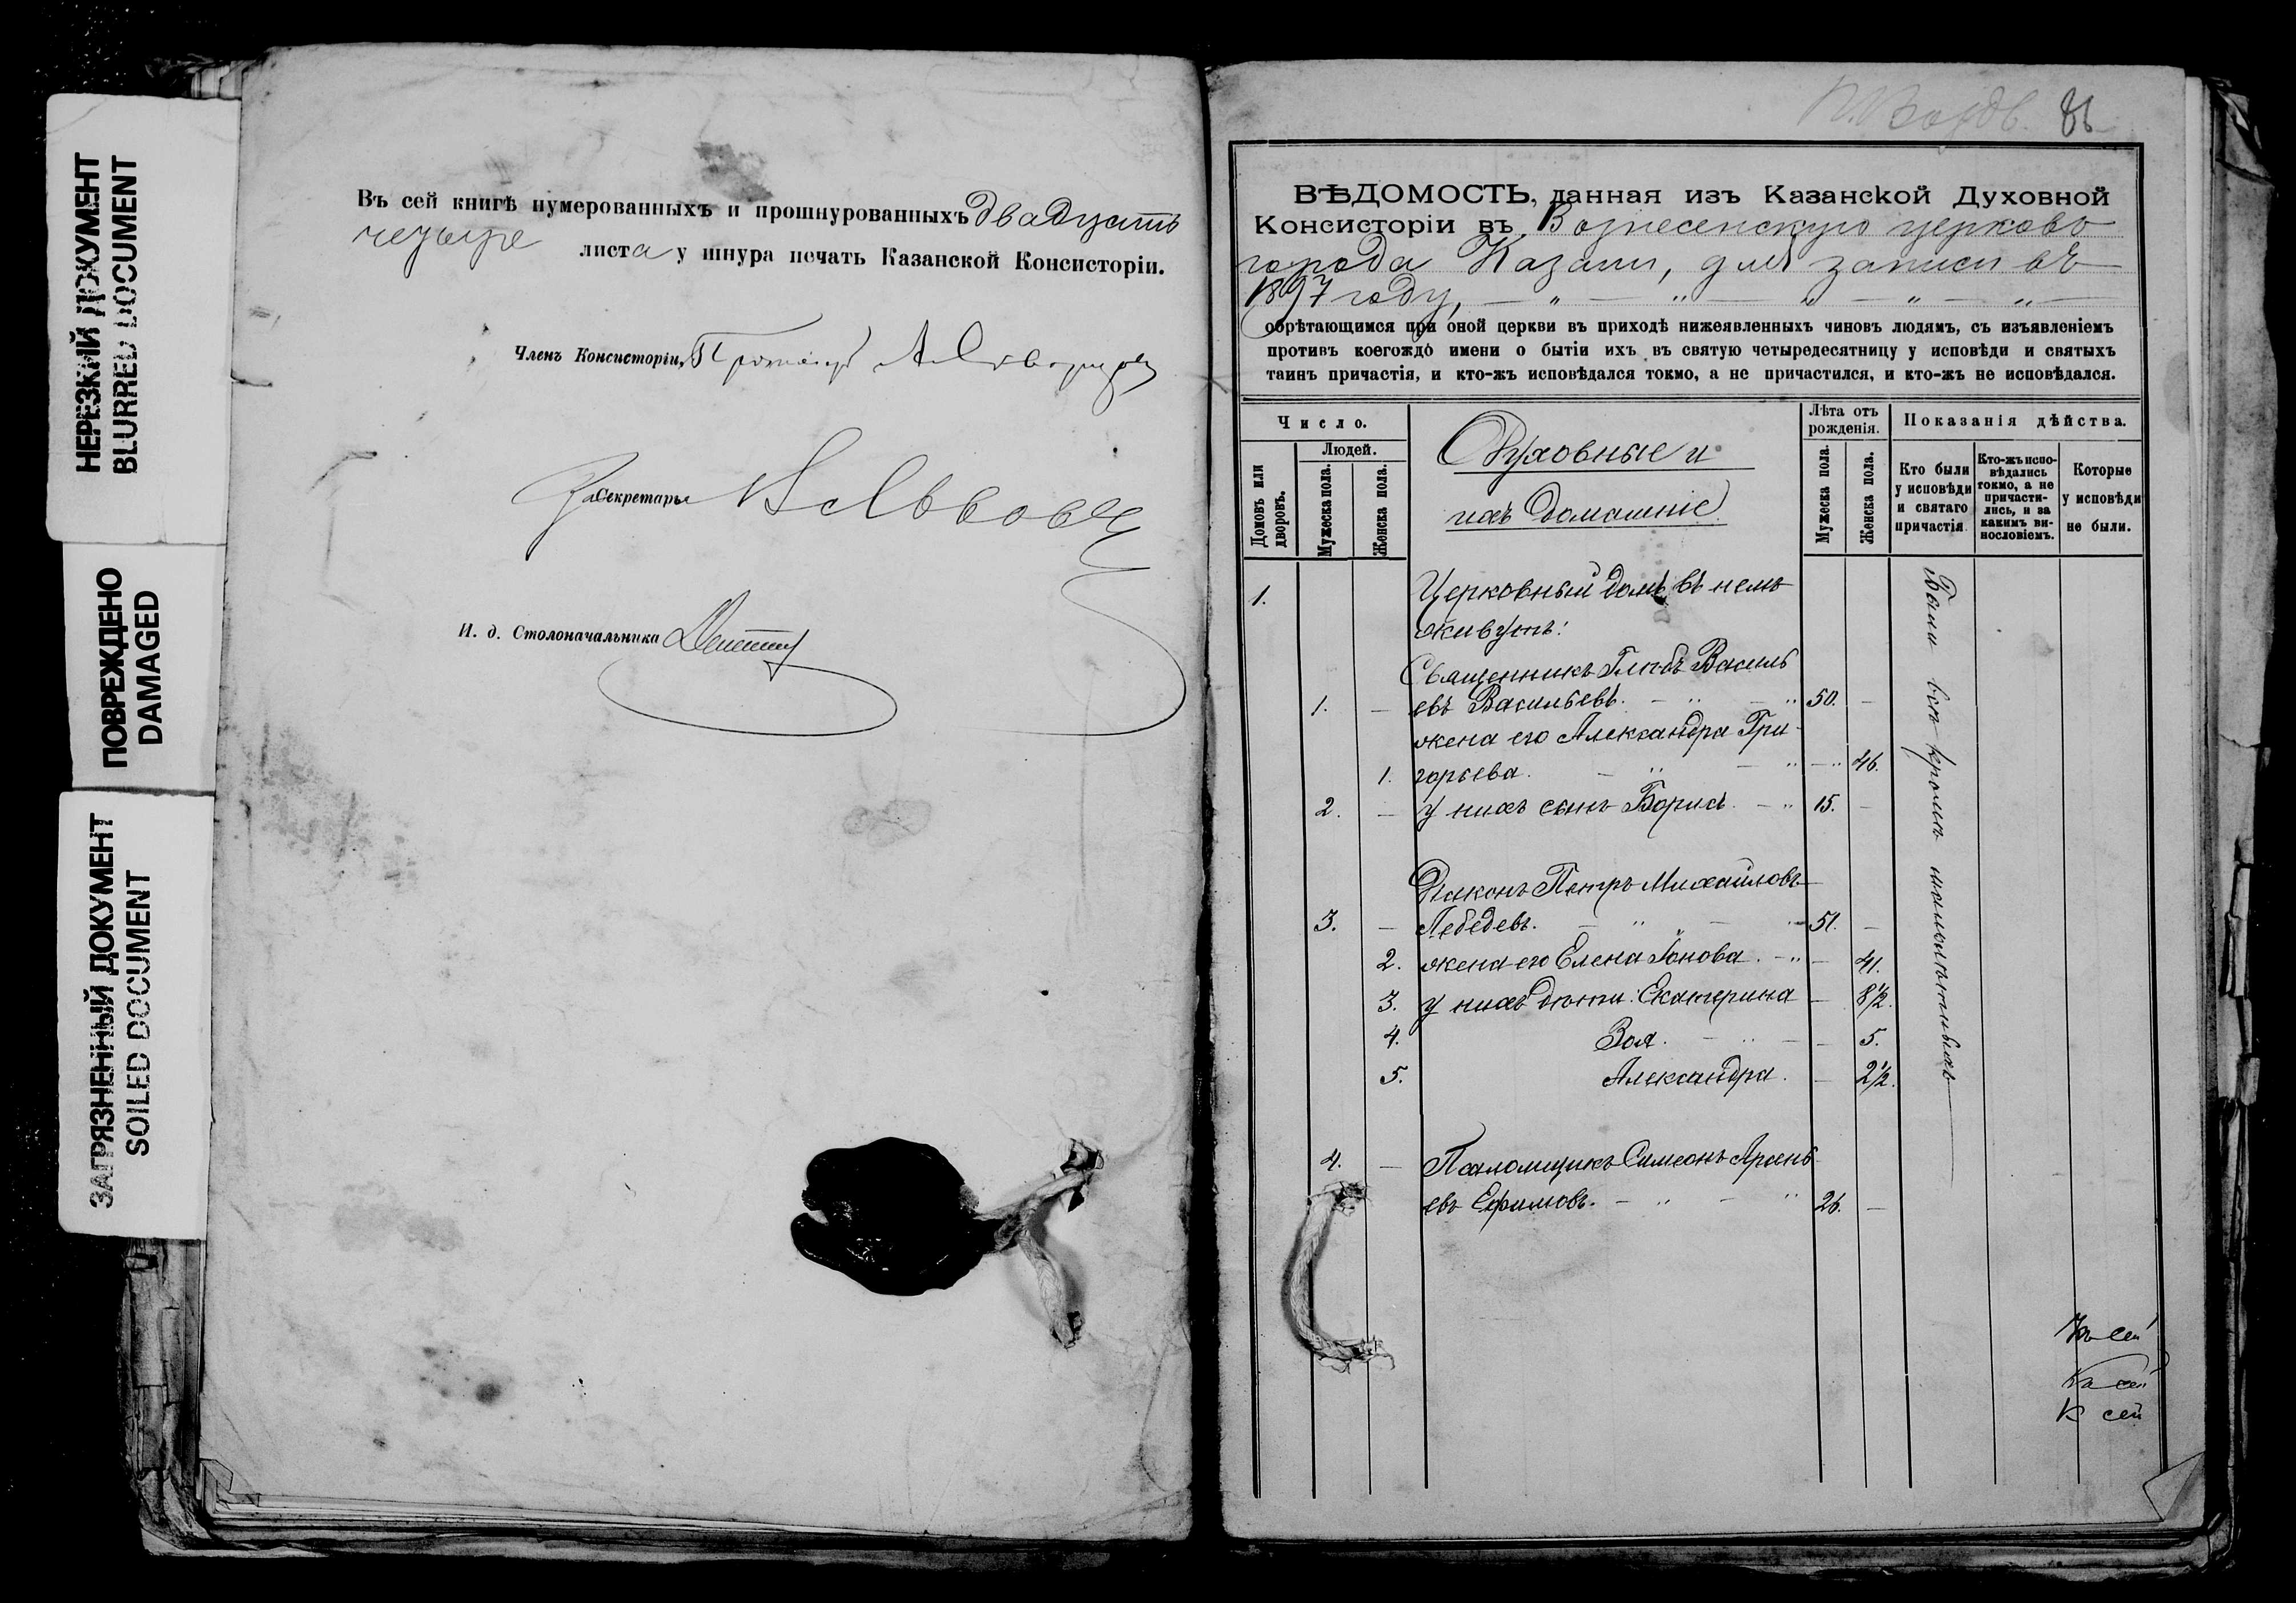 НЕРЕЗКИЙ ДОКУМЕНТ
BLURRED DOCUMENT
ПОВРЕЖДЕНО
DAMAGED
ЗАГРЯЗНЕННЫЙ ДОКУМЕНТ
SOILED DOCUMENT
Въ сей книгѣ нумерованныхъ и прошнурованныхъ двадцать
четыре листа у шнура печать Казанской Консисторіи.
Членъ Консисторіи, А.
За Секретаря
И. д. Столоначальника
86
ВѢДОМОСТЬ, данная изъ Казанской Духовной
Консисторіи въ Вознесенскую церковь
города Казани, для записи въ
1897 году,
обрѣтающимся при оной церкви въ приходѣ нижеявленныхъ чиновъ людямъ, съ изъявленіемъ
противъ коегождо имени о бытіи ихъ въ святую четыредесятницу у исповѣди и святыхъ
таинъ причастія, и кто-жъ исповѣдался токмо, а не причастился, и кто-жъ не исповѣдался.
Число.
Домовъ или дворовъ.
Людей.
Мужеска пола.
Женска пола.
Духовные и
ихъ домашніе
Лѣта отъ
рожденія.
Мужеска пола.
Женска пола.
Показанія дѣйства.
Кто были
у исповѣди
и святаго
причастія
Кто-жъ испо-
вѣдались
токмо, а не
причасти-
лись, и за
какимъ ви-
нословіемъ.
Которые
у исповѣди
не были.
1. Церковный домъ, въ немъ
живутъ:
Священникъ Глѣбъ Василь
1. — евъ Васильевъ. — „ — „ 50. —
жена его Александра Гри-
1. горьева. — „ — „ — „ 46.
2. — у нихъ сынъ Борисъ — „ 15. —
Діаконъ Петръ Михайловъ
3. — Лебедевъ. — „ — „ 51. —
2. жена его Елена Іонова. — „ — 41.
3. у нихъ дѣти: Екатерина — 8 1/2.
4. Зоя. — „ — — 5.
5. Александра. — 2 1/2.
4. — Псаломщикъ Симеонъ Арсень-
евъ Ефимовъ. — „ — „ 26. —
Были всѣ кромѣ малолѣтныхъ
Къ сей
Къ сей
К сей